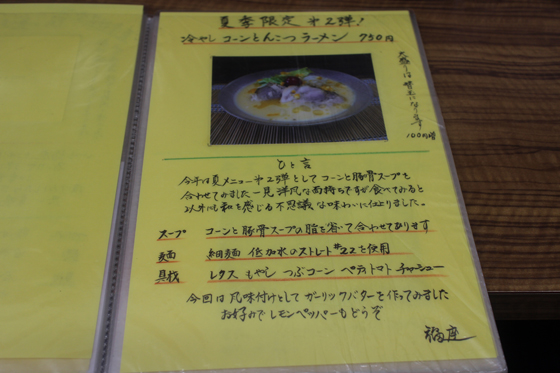 夏季限定 第2弾!
冷やし コーンとんこつラーメン 750円
大盛りは 替玉になります
100円増
ひと言
今年は夏メニュー第2弾として コーンと豚骨スープを
合わせてみました 一見 洋風な面持ちですが食べてみると
以外にも和を感じる不思議な味わいに仕上りました。
スープ コーンと豚骨スープの脂を省いて合わせております
麺 細麺 低加水のストレート#22を使用
具材 レタス もやし つぶコーン ペティトマト チャーシュー
今回は風味付けとして ガーリックバターを作ってみました
お好みで レモンペッパーもどうぞ